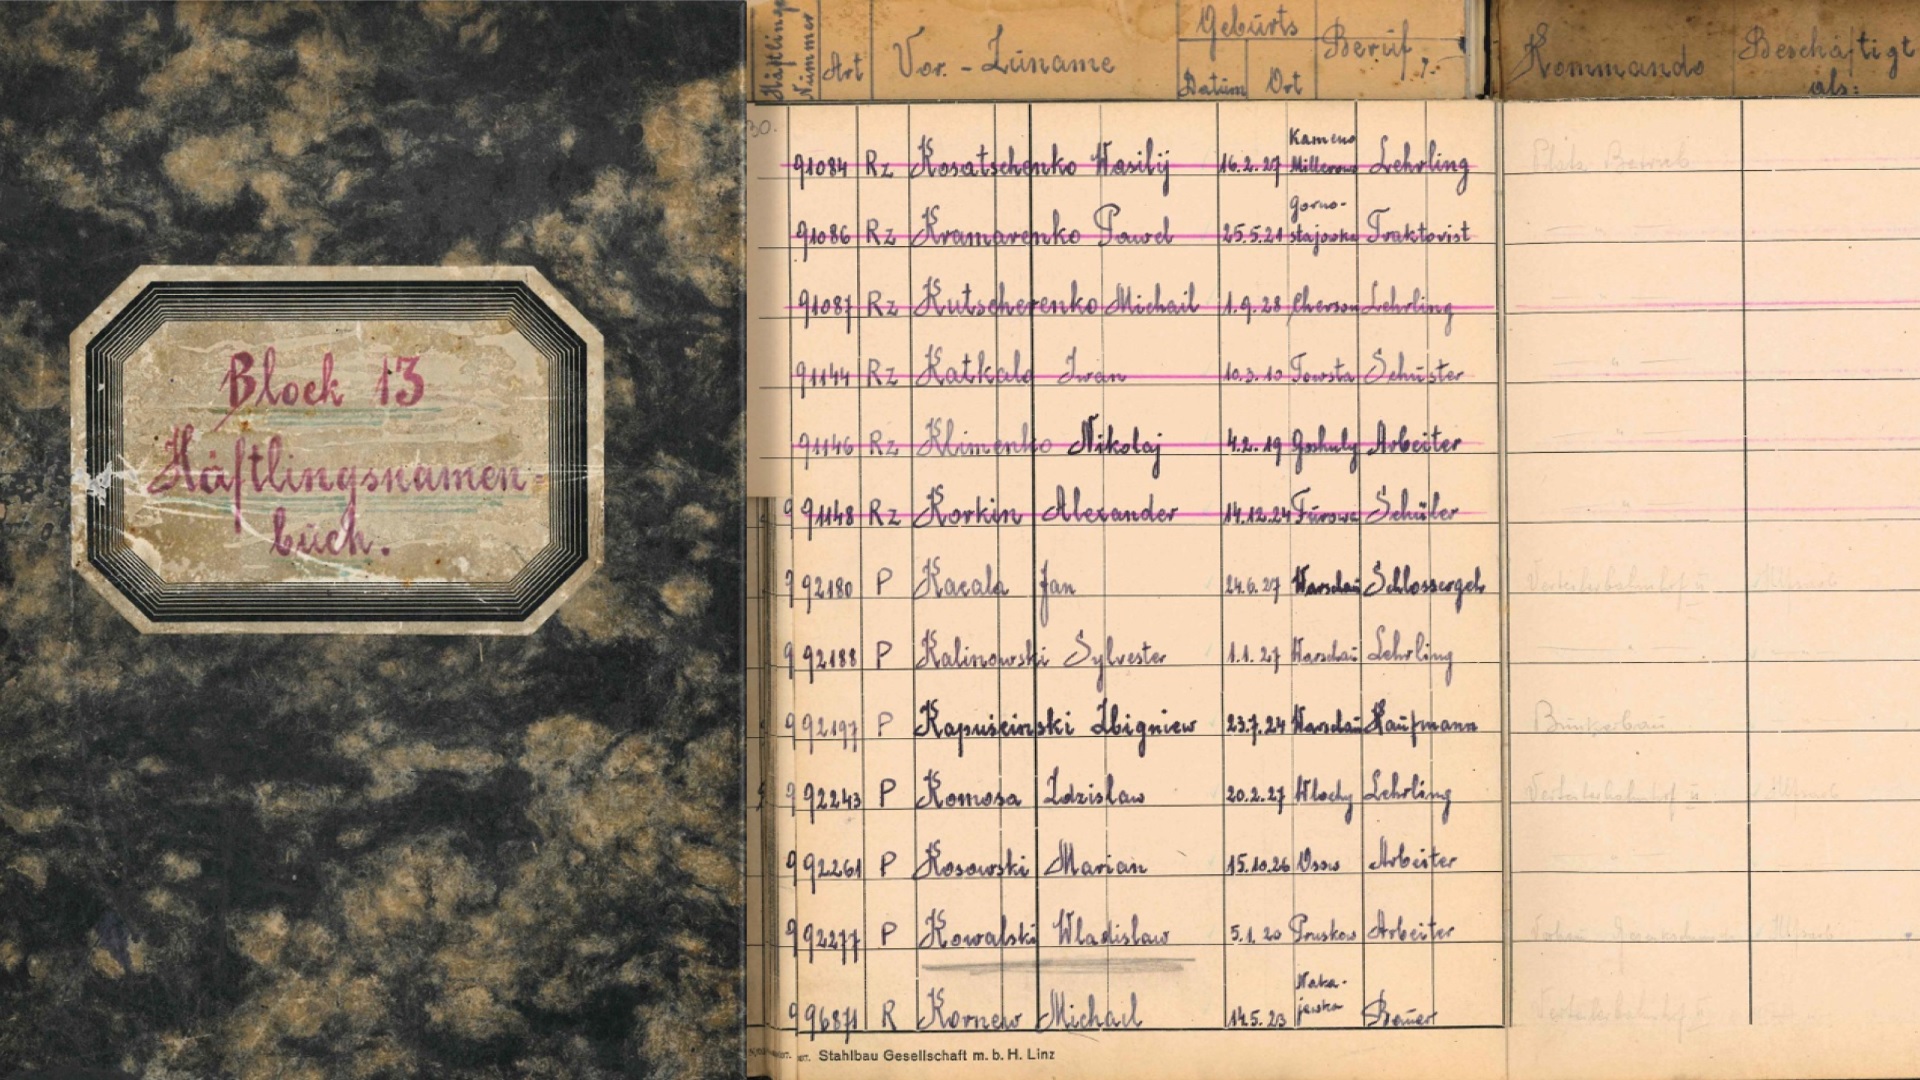 Block 13
Häftlingsnamen-
buch.
Häftlings Nummer Art Vor. - Zuname Geburts Datum Ort Beruf Kommando Beschäftigt als:
30.
91084 Rz Kosatschenko Wasilij 16.2.27 Kameno Millerowo Lehrling
91086 Rz Kramarenko Pawel 25.5.21 Gorno-stajowka Traktorist
91087 Rz Kutscherenko Michail 1.9.28 Cherson Lehrling
91144 Rz Katkalo Iwan 10.3.10 Towsta Schuster
91146 Rz Klimenko Nikolaj 4.2.19 Arbeiter
91148 Rz Korkin Alexander 14.12.24 Schüler
92180 P Kacala Jan 24.6.27 Warschau Schlossergeh
92188 P Kalinowski Sylvester 1.1.27 Warschau Lehrling
92197 P Kapuścinski Zbigniew 23.7.24 Warschau Kaufmann Bunkerbau
92243 P Komosa Zdzislaw 20.2.27 Wlochy Lehrling
92261 P Kosowski Marian 15.10.26 Ossow Arbeiter
92277 P Kowalski Wladislaw 5.1.20 Pruskow Arbeiter
96871 R Kornew Michail 14.5.23 Bauer
Stahlbau Gesellschaft m. b. H. Linz